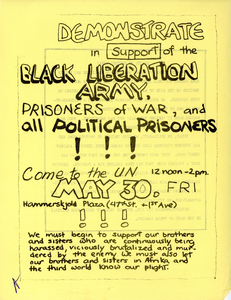 DEMONSTRATE
in support of the
BLACK LIBERATION
ARMY,
PRISONERS of WAR, and
all POLITICAL PRISONERS
! ! !
Come to the UN 12 noon-2pm.
MAY 30, FRI
Hammerskjold Plaza (47th st. + 1st Ave)
! ! !
We must begin to support our brothers
and sisters who are continuously being
harassed, viciously brutalized and mur-
dered by the enemy. We must also let
our brothers and sisters in Afrika and
the third world know our plight.